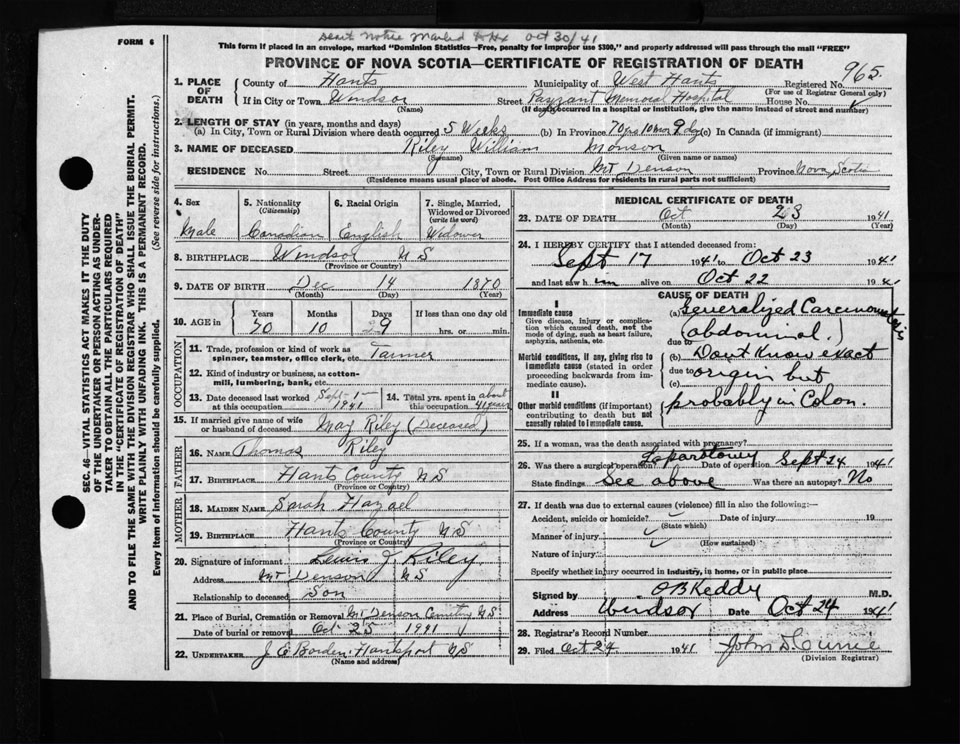 Notice Mailed Oct 30/41
FORM 6
This form if placed in an envelope, marked "Dominion Statistics—Free, penalty for improper use $300," and properly addressed will pass through the mail "FREE"
PROVINCE OF NOVA SCOTIA—CERTIFICATE OF REGISTRATION OF DEATH
965
1. PLACE OF DEATH County of Hants Municipality of West Hants Registered No.
(For use of Registrar General only)
If in City or Town Windsor Street Payzant Memorial Hospital House No.
(Name) (If death occurred in a hospital or institution, give the name instead of street and number)
2. LENGTH OF STAY (in years, months and days)
(a) In City, Town or Rural Division where death occurred 5 Weeks (b) In Province 70 yrs 10 mos 9 dys (c) In Canada (if immigrant)
3. NAME OF DECEASED Riley William Monson
(Surname) (Given name or names)
RESIDENCE No. Street City, Town or Rural Division Mt Denson Province Nova Scotia
(Residence means usual place of abode. Post Office Address for residents in rural parts not sufficient)
4. Sex Male
5. Nationality (Citizenship) Canadian
6. Racial Origin English
7. Single, Married, Widowed or Divorced (write the word) Widower
8. BIRTHPLACE Windsor N S
(Province or Country)
9. DATE OF BIRTH Dec 14 1870
(Month) (Day) (Year)
10. AGE in Years Months Days If less than one day old
70 10 hrs. or min.
OCCUPATION
11. Trade, profession or kind of work as spinner, teamster, office clerk, etc. Farmer
12. Kind of industry or business, as cotton-mill, lumbering, bank, etc.
13. Date deceased last worked at this occupation Sept-1-1941
14. Total yrs. spent in this occupation about 41 years
15. If married give name of wife or husband of deceased May Riley (Deceased)
FATHER
16. NAME Thomas Riley
17. BIRTHPLACE Hants County N S
(Province or Country)
MOTHER
18. MAIDEN NAME Sarah
19. BIRTHPLACE Hants County N S
(Province or Country)
20. Signature of informant Lewis J. Riley
Address Mt Denson N S
Relationship to deceased Son
21. Place of Burial, Cremation or Removal Mt Denson Cemetery N S
Date of burial or removal Oct 25 1941
22. UNDERTAKER J E Borden Hantsport N S
(Name and address)
MEDICAL CERTIFICATE OF DEATH
23. DATE OF DEATH Oct 23 1941
(Month) (Day) (Year)
24. I HEREBY CERTIFY that I attended deceased from:
Sept 17 1941 to Oct 23 1941
and last saw him alive on Oct 22 194
CAUSE OF DEATH
I
Immediate cause
Give disease, injury or complication which caused death, not the mode of dying, such as heart failure, asphyxia, asthenia, etc.
Morbid conditions, if any, giving rise to immediate cause (stated in order proceeding backwards from immediate cause).
II
Other morbid conditions (if important) contributing to death but not causally related to immediate cause.
(a) Generalized Carcinomatosis
due to (abdominal.)
(b) Dont Know exact
due to origin but
(c) probably in Colon.
25. If a woman, was the death associated with pregnancy?
26. Was there a surgical operation? Laparotomy Date of operation Sept 24 1941
State findings See above Was there an autopsy? No
27. If death was due to external causes (violence) fill in also the following:—
Accident, suicide or homicide? Date of injury 19
(State which)
Manner of injury
(How sustained)
Nature of injury
Specify whether injury occurred in industry, in home, or in public place
Signed by O B Keddy M.D.
Address Windsor Date Oct 24 1941
28. Registrar's Record Number
29. Filed Oct 24 1941 John D. Currie
(Division Registrar)
SEC. 46—VITAL STATISTICS ACT MAKES IT THE DUTY
OF THE UNDERTAKER OR PERSON ACTING AS UNDER-
TAKER TO OBTAIN ALL THE PARTICULARS REQUIRED
IN THE "CERTIFICATE OF REGISTRATION OF DEATH"
AND TO FILE THE SAME WITH THE DIVISION REGISTRAR WHO SHALL ISSUE THE BURIAL PERMIT.
WRITE PLAINLY WITH UNFADING INK. THIS IS A PERMANENT RECORD.
Every item of information should be carefully supplied. (See reverse side for instructions.)